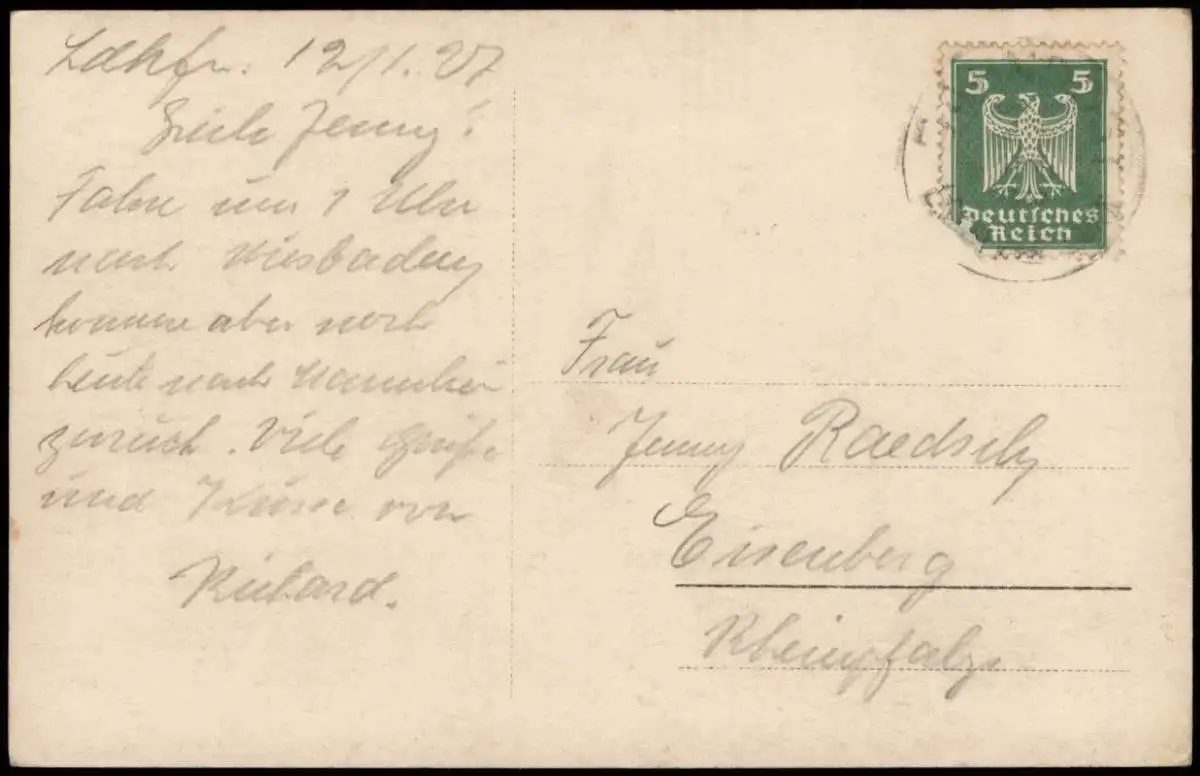 12/1.27
Jenny!
Fahre um 1 Uhr
nach Wiesbaden,
komme aber noch
heute nach Mannheim
zurück. Viele Grüße
und Küsse von
Richard.
5 5
Deutsches
Reich
Frau
Jenny
Eisenberg
Rheinpfalz